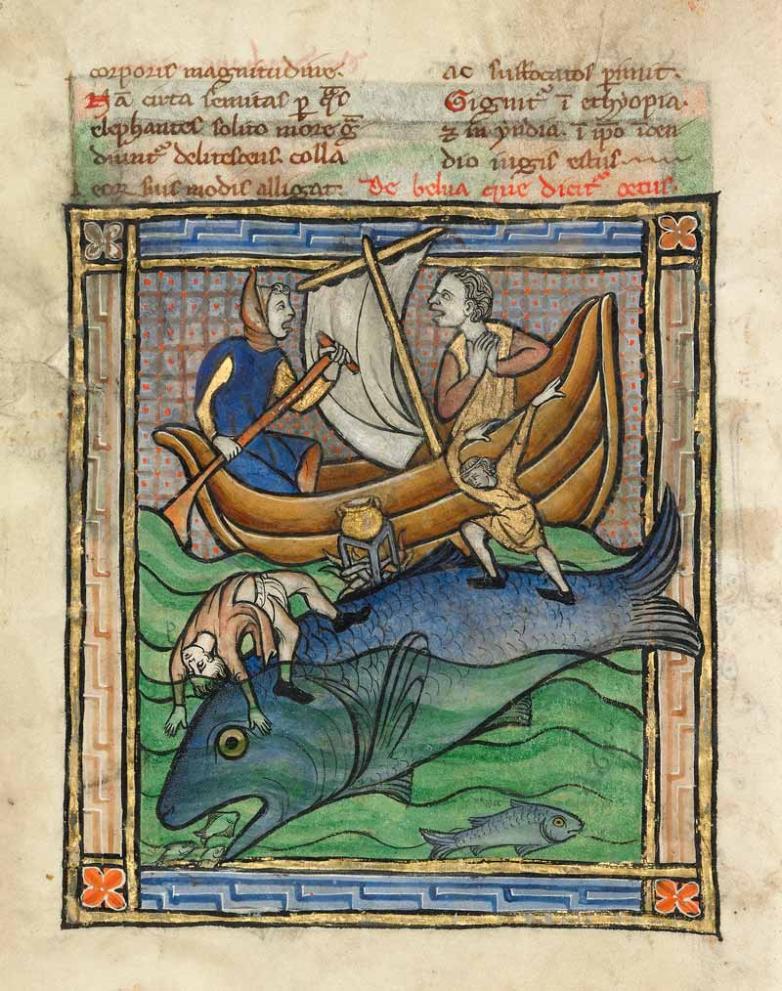 corporis magnitudine.
Nā circa semitas p q̄s
elephantes solito more ḡ
diunt᷑ delitescens. colla
eoꝝ suis modis alligat.
ac suffocatos pimit.
Gignit᷑ ī ethyopia.
⁊ in yndia. ī ip̄o īcen
dio iugis estus
De belua que dicit᷑ cetus.